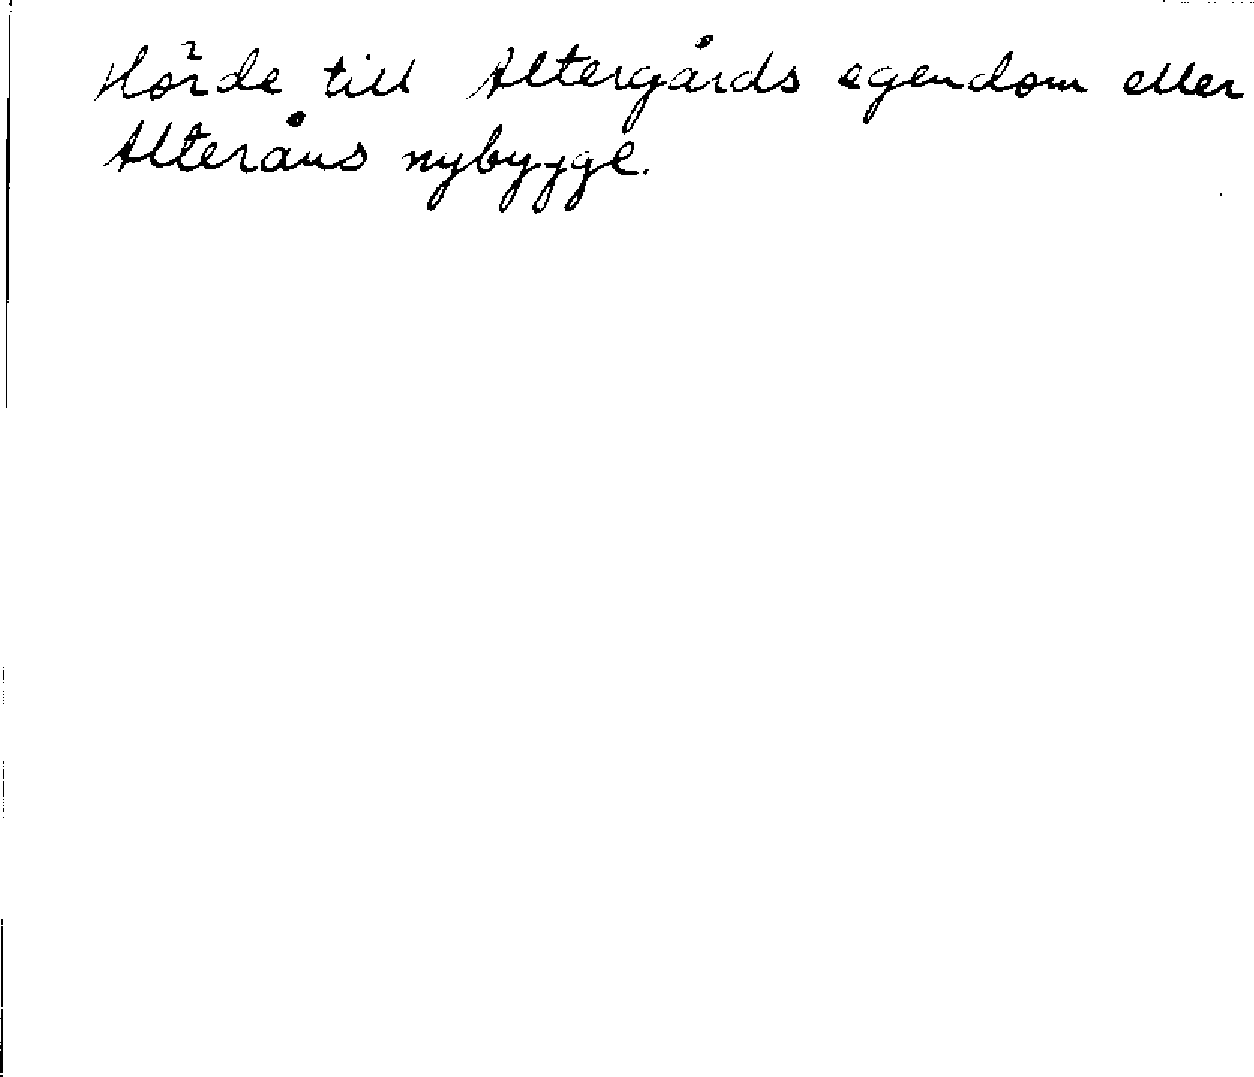 Hörde till Altergårds egendom eller
Alteråns nybygge.